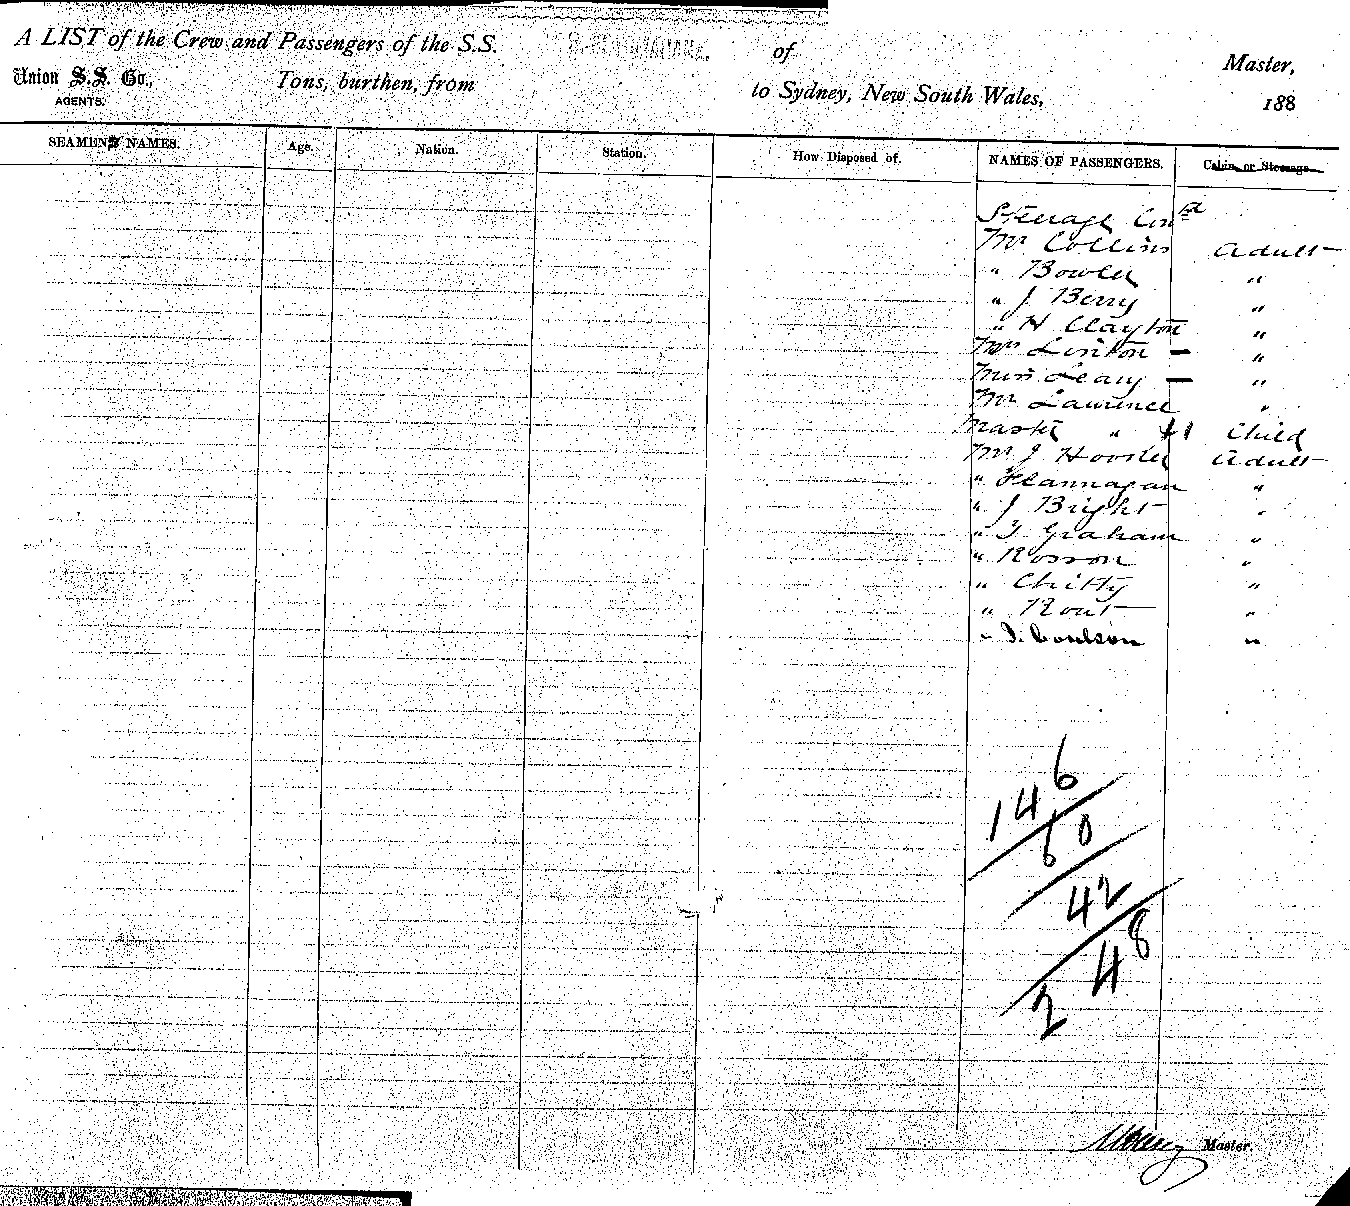 A LIST of the Crew and Passengers of the S.S. of Master,
Union S.S. Co., Tons, burthen, from to Sydney, New South Wales, 188
AGENTS.
SEAMENS NAMES. Age. Nation. Station. How Disposed of. NAMES OF PASSENGERS. Cabin or Steerage
Steerage Con^td
Mr Collins Adult
" Bowler "
" J Berry "
" H Clayton "
Mrs Linton - "
Miss Leary - "
Mr Lawrence "
Master " 1 Child
Mr J Adult
" Flannagan "
" J Bright "
" Graham "
" Rosson "
" Chitty "
" Rout "
" J. Coulson "
146
60
42
48
2
Master.